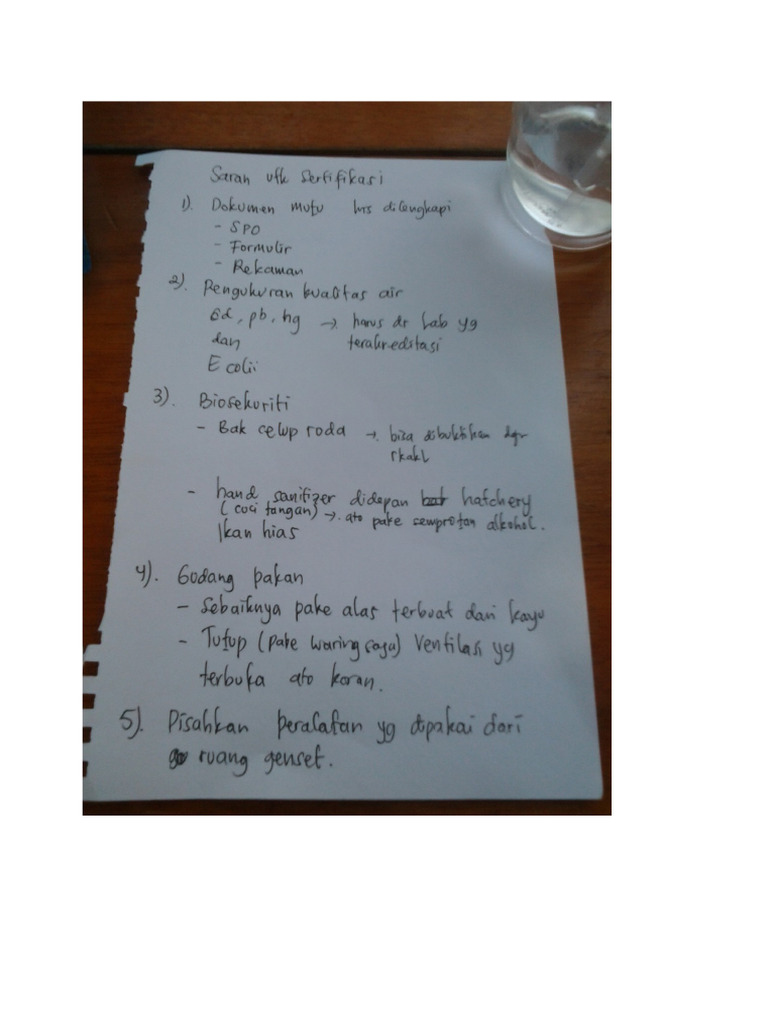 Saran utk Sertifikasi
1). Dokumen mutu hrs dilengkapi
- SPO
- Formulir
- Rekaman
2). Pengukuran kualitas air
Cd, pb, hg → harus dr Lab yg
dan terakreditasi
E colii
3). Biosekuriti
- Bak celup roda → bisa dibuktikan dgn
- hand sanitizer didepan hatchery
(cuci tangan) → ato pake semprotan alkohol.
Ikan hias
4). Gudang pakan
- Sebaiknya pake alas terbuat dari kayu
- Tutup (pake waring saja) Ventilasi yg
terbuka ato koran.
5). Pisahkan peralatan yg dipakai dari
ruang genset.